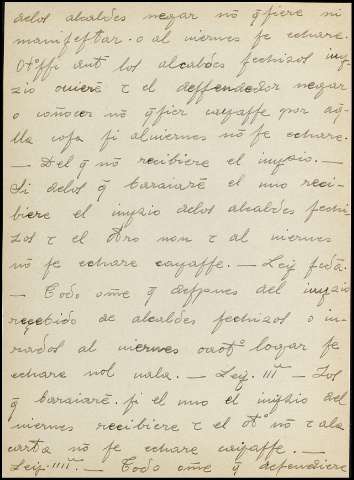 delos alcaldes negar nõ q̃fiere ni
manifeftar. o al viernes fe echare.
Otºffi ant los alcaldes fechizos juy-
zio oviere τ el deffendedor negar
o coñocer nõ q̃fier cayaffe por aq̃-
lla cofa fi al viernes nõ fe echare.
— Del q̃ nõ recibiere el juyzio. —
Si delos q̃ baraiarẽ el uno reci-
biere el juyzio delos alcaldes fechi-
zos τ el otro non τ al viernes
nõ fe echare cayaffe. — Ley fcdã.
— Todo ome q̃ defpues del juyzio
recebido de alcaldes fechizos o iu-
rados al viernes o a otº logar fe
echare nol vala. — Ley. III — Los
q̃ baraiarẽ. fi el uno el juyzio del
viernes recibiere τ el otº nõ τ ala
carta nõ fe echare cayaffe. —
Ley. IIII. — Todo ome q̃ defendiere